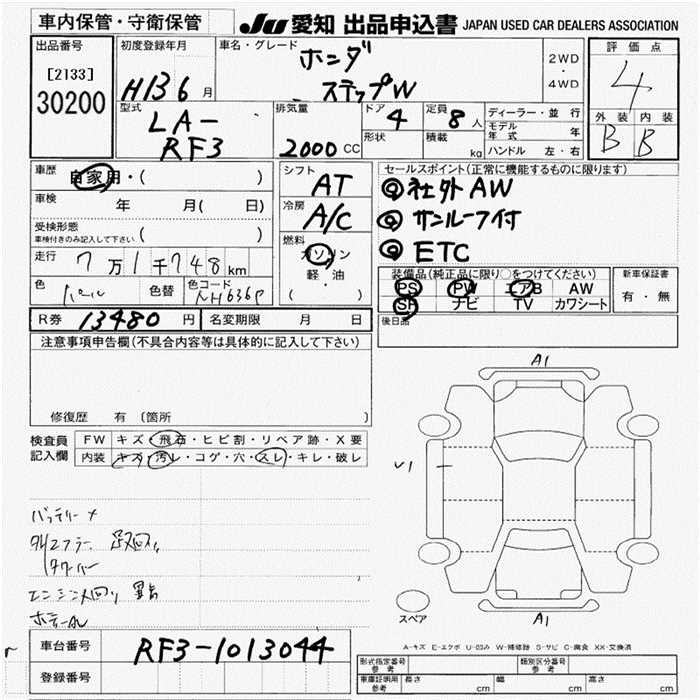 車内保管・守衛保管
JU 愛知 出品申込書 JAPAN USED CAR DEALERS ASSOCIATION
出品番号
[2133]
30200
初度登録年月
H13 6 月
車名・グレード
ホンダ
ステップW
2WD
・
4WD
評価点
4
外装 内装
B B
型式
LA-
RF3
排気量
2000 CC
ドア
4
定員
8 人
形状
積載
kg
ディーラー・並行
モデル年式 年
ハンドル 左・右
車歴
自家用・( )
車検
年 月( 日)
受検形態
車検付きのみ記入して下さい ( )
走行
7万1千748km
色
パール
色替
色コード
NH636P
シフト
AT
冷房
A/C
燃料
ガソリン
軽・油
( ・ )
セールスポイント(正常に機能するものに限ります)
◎社外AW
◎サンルーフ付
◎ETC
装備品(純正品に限り○をつけてください)
PS PW エアB AW
SR ナビ TV カワシート
新車保証書
有・無
R券 13480 円
名変期限 月 日
後日品
注意事項申告欄(不具合内容等は具体的に記入して下さい)
修復歴 有 (箇所
検査員
記入欄
FW キズ・飛石・ヒビ割・リペア跡・X要
内装 キズ・汚レ・コゲ・穴・スレ・キレ・破レ
A1
U1
A1
スペア
バッテリー
A-キズ E-エクボ U-凹み W-補修跡 S-サビ C-腐食 XX-交換済
車台番号
RF3-1013044
登録番号
形式指定番号
参考
類別区分番号
参考
車庫証明用
参考
長さ cm
幅 cm
高さ cm